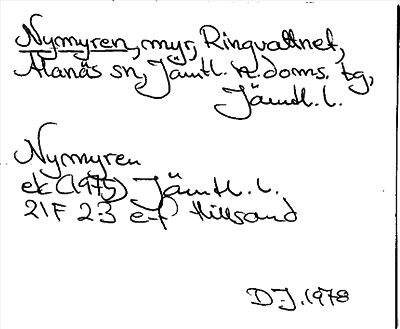 Nymyren, myr, Ringvattnet,
Alanäs sn, Jämtl. n. doms. tg,
Jämtl. l.
Nymyren
ek (1975) Jämtl. l.
21F 2-3 e-f Hillsand
D-J. 1978